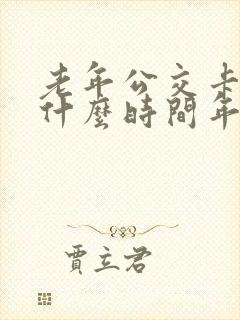 老年公交卡
什麼時間年
賈立君